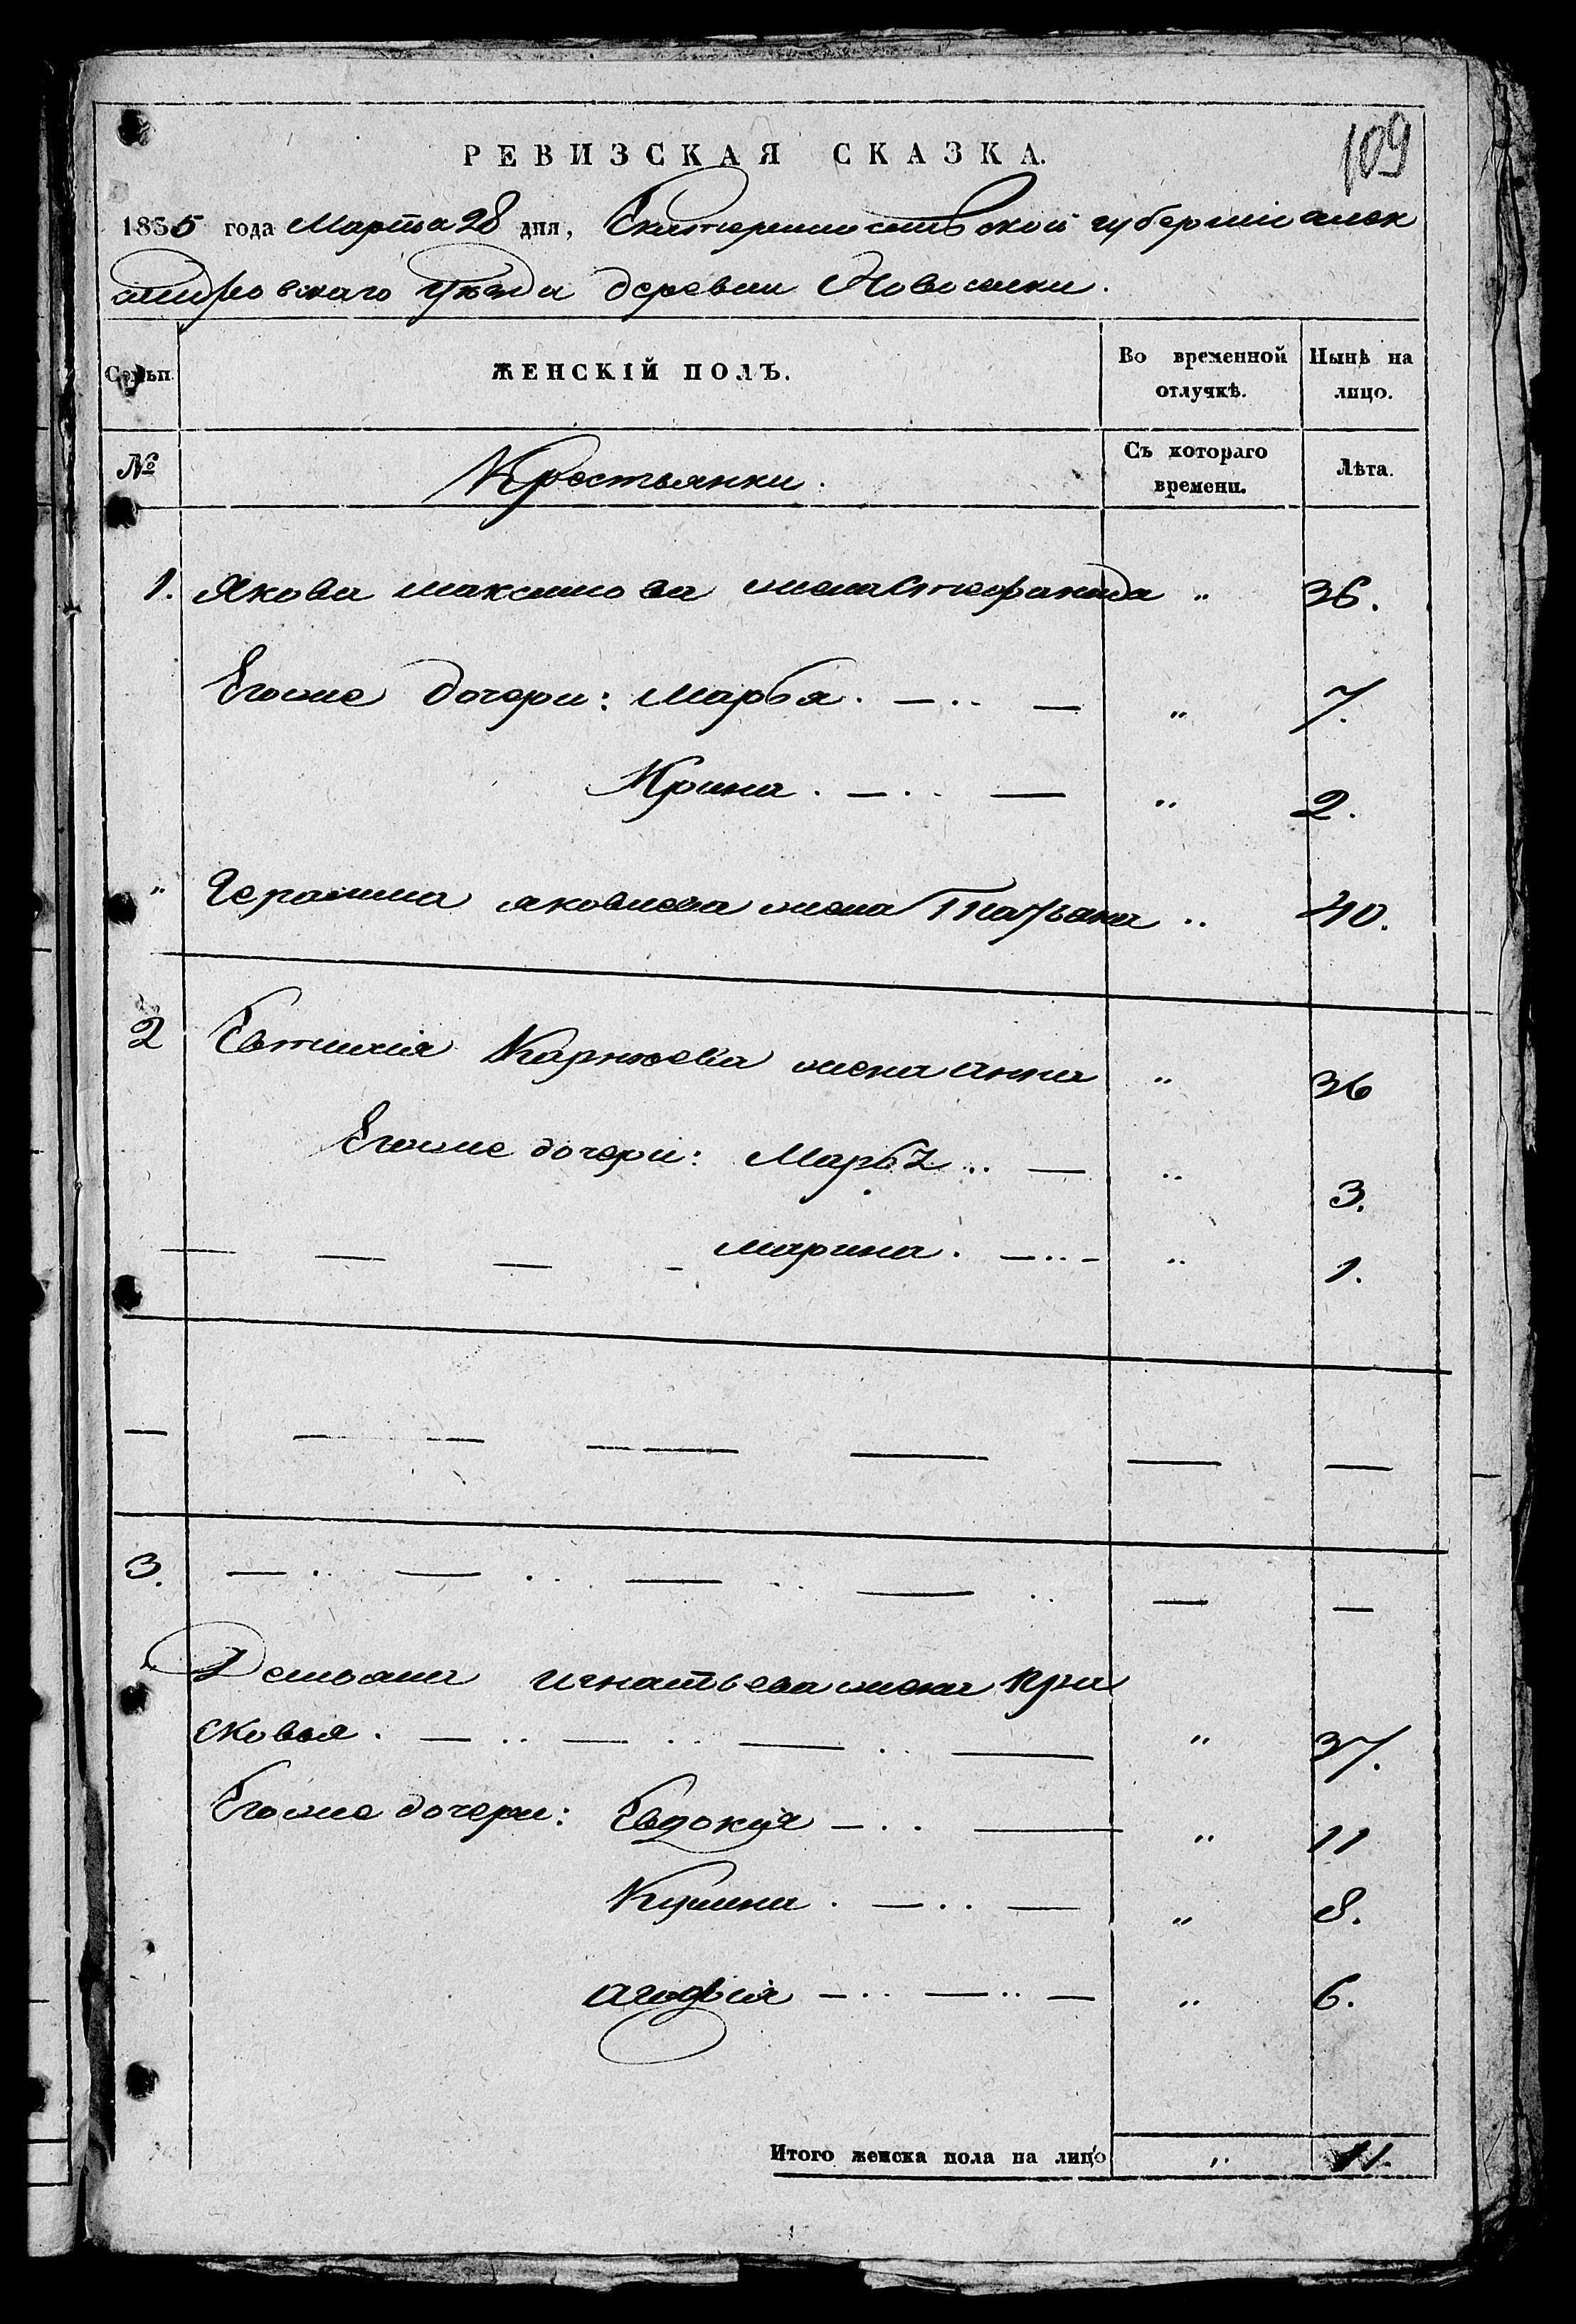 109
РЕВИЗСКАЯ СКАЗКА.
1855 года Марта 28 дня, Екатеринославской губерніи алек
сандровскаго уѣзда деревни Новоселки.
Семьи.
ЖЕНСКІЙ ПОЛЪ.
Во временной отлучкѣ.
Нынѣ на лицо.
№
Крестьянки.
Съ котораго времени.
Лѣта.
1. Якова максимова жена Стефанида " 36.
Егоже дочери: Марья. " 7.
Ирина. " 2.
" Герасима яковлева жена Татьяна " 40.
2 Евтихія Карнѣева жена анна " 36
Егоже дочери: Марья " 3.
марина. " 1.
3.
" Демьяна игнатьева жена Пра
сковья. " 37.
Егоже дочери: Евдокія " 11
" 8.
" 6.
Итого женска пола на лицо " 11.